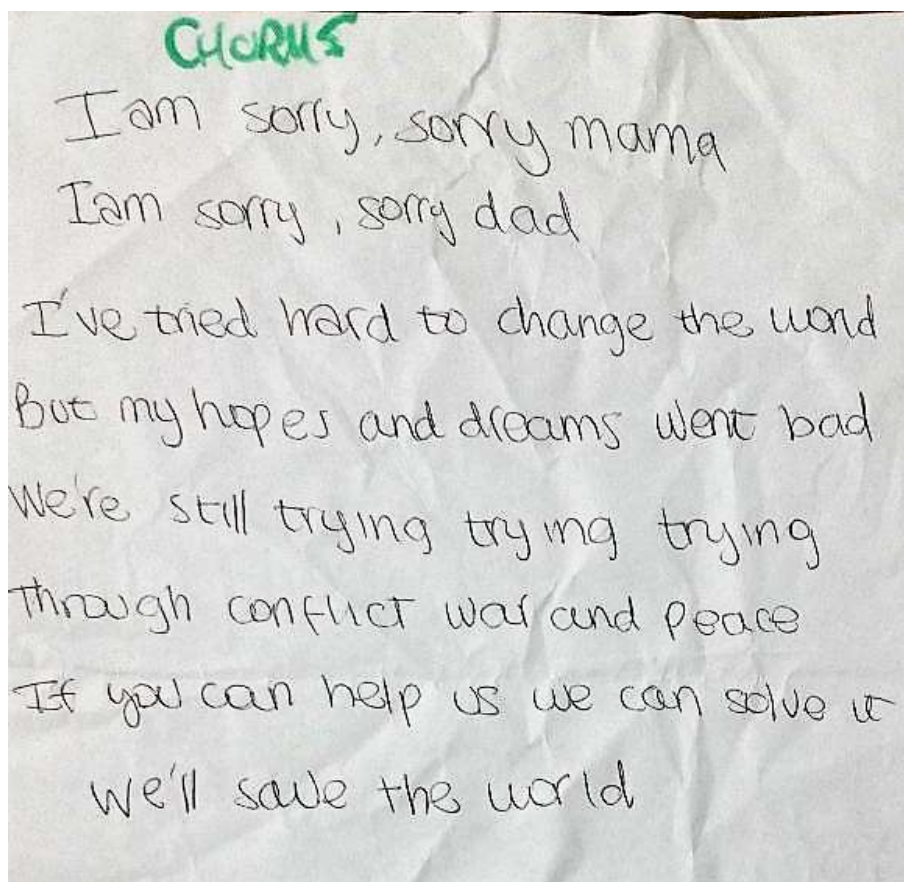 CHORUS
I am sorry, sorry mama
I am sorry, sorry dad
I've tried hard to change the world
But my hopes and dreams went bad
We're still trying trying trying
Through conflict war and peace
If you can help us we can solve it
We'll save the world